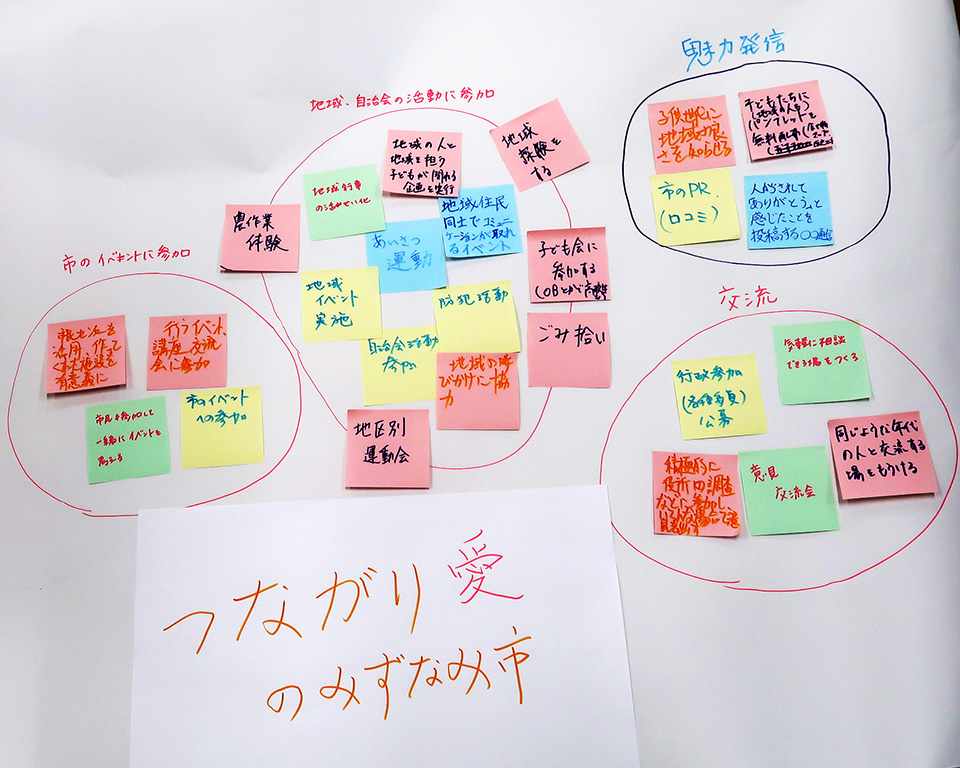 魅力発信
子供世代に
地域の良
さを知らせる
子どもたちに
(地域の人も)
パンフレットを
無料配布
市のPR.
(口コミ)
人がされて
ありがとうと
感じたことを
投稿する
地域、自治会の活動に参加
地域の人と
地域を担う
子どもが関わる
企画を実行
地域
探検を
する
地域行事
の活せい化
地域住民
同士でコミュニ
ケーションが取れ
るイベント
農作業
体験
あいさつ
運動
子ども会に
参加する
(OBとかで
地域
イベント
実施
防犯活動
ごみ拾い
自治会活動
参加
地域の呼
びかけに協
力
地区別
運動会
市のイベントに参加
活用、作って
くれた施設を
有意義に
行うイベント、
講座、交流
会に参加
市民も参加して
一緒にイベントを
市のイベント
への参加
交流
気軽に相談
できる場をつくる
行政参加
(各種委員)
公募
同じような年代
の人と交流する
場をもうける
積極的に
役所の調査
などに参加し、
意見
交流会
つながり愛
のみずなみ市